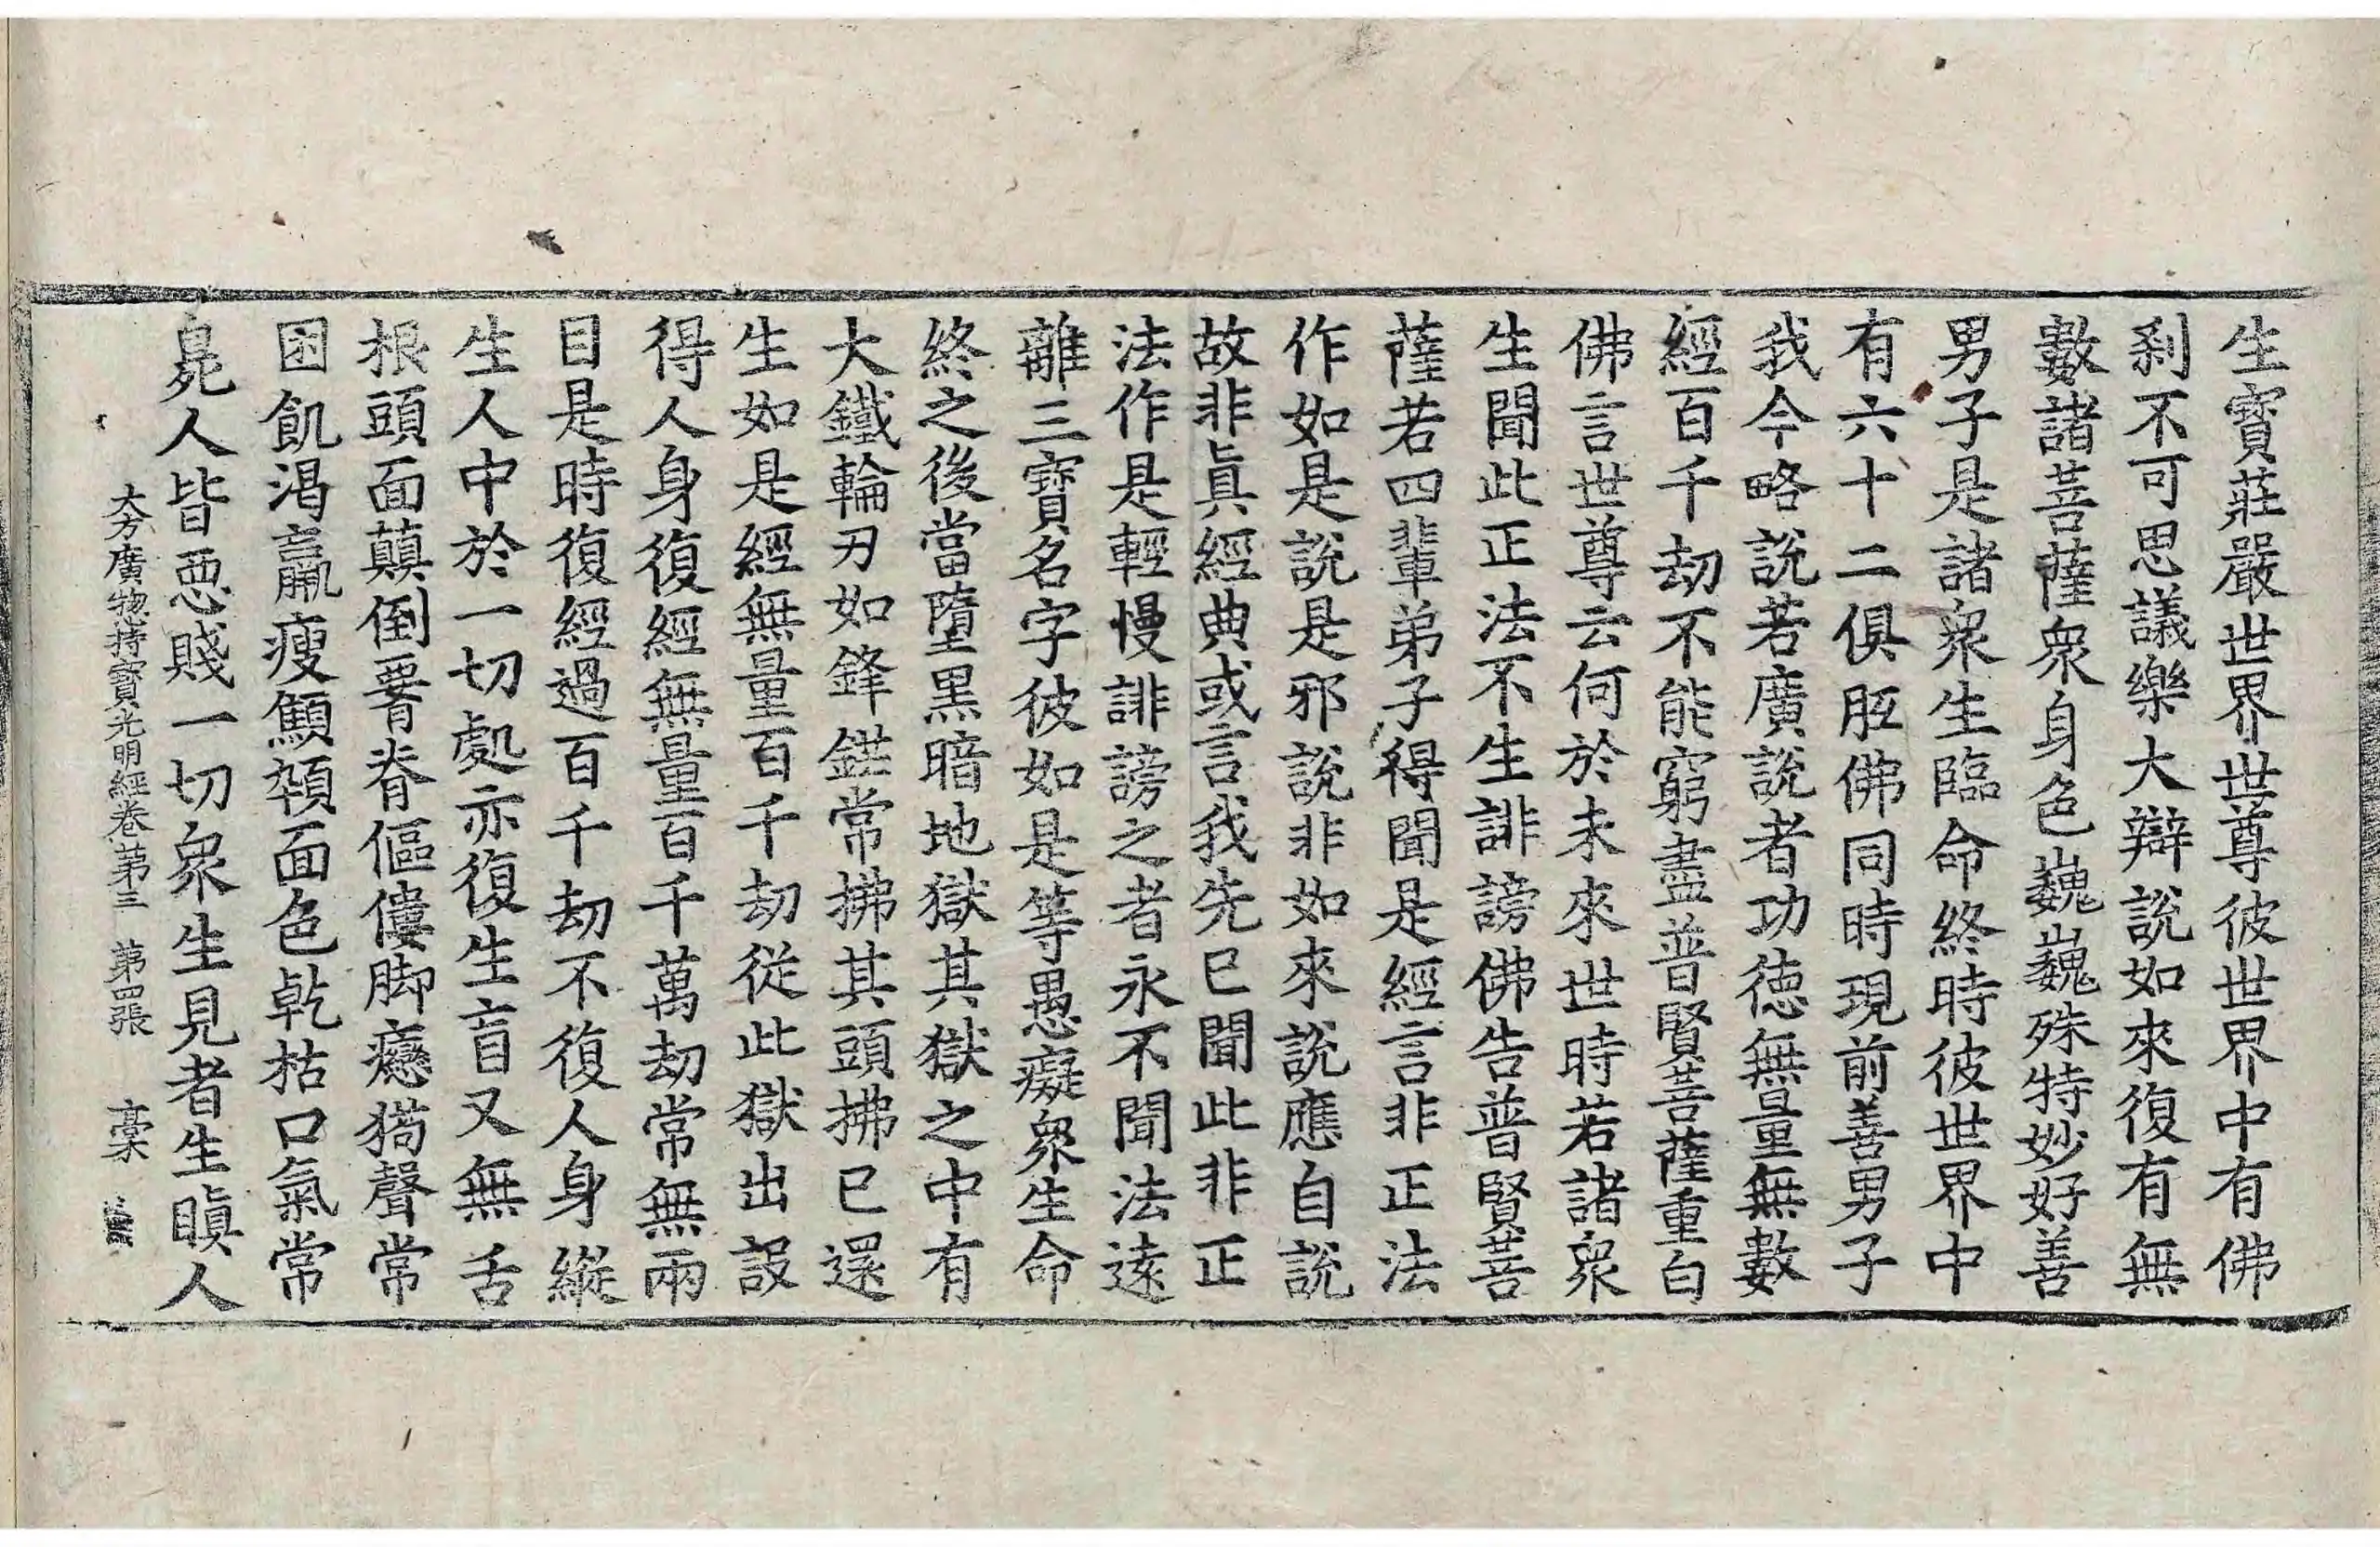 生寶莊嚴世界世尊彼世界中有佛
刹不可思議樂大辯說如來復有無
數諸菩薩衆身色巍巍殊特妙好善
男子是諸衆生臨命終時彼世界中
有六十二俱胝佛同時現前善男子
我今略說若廣說者功徳無量無數
經百千劫不能窮盡普賢菩薩重白
佛言世尊云何於未來世時若諸衆
生聞此正法不生誹謗佛告普賢菩
薩若四輩弟子得聞是經言非正法
作如是說是邪說非如來說應自說
故非眞經典或言我先已聞此非正
法作是輕慢誹謗之者永不聞法遠
離三寶名字彼如是等愚癡衆生命
終之後當墮黑暗地獄其獄之中有
大鐵輪刃如鋒鋩常拂其頭拂已還
生如是經無量百千劫從此獄出設
得人身復經無量百千萬劫常無兩
目是時復經過百千劫不復人身縱
生人中於一切處亦復生盲又無舌
根頭面蘔倒署脊傴僂脚癮㺃聲常
困飢渴羸瘦顦顇面色乾枯口氣常
臰人皆惡賤一切衆生見者生瞋人
大方廣惣持寶光明經卷第三 第四張 稾